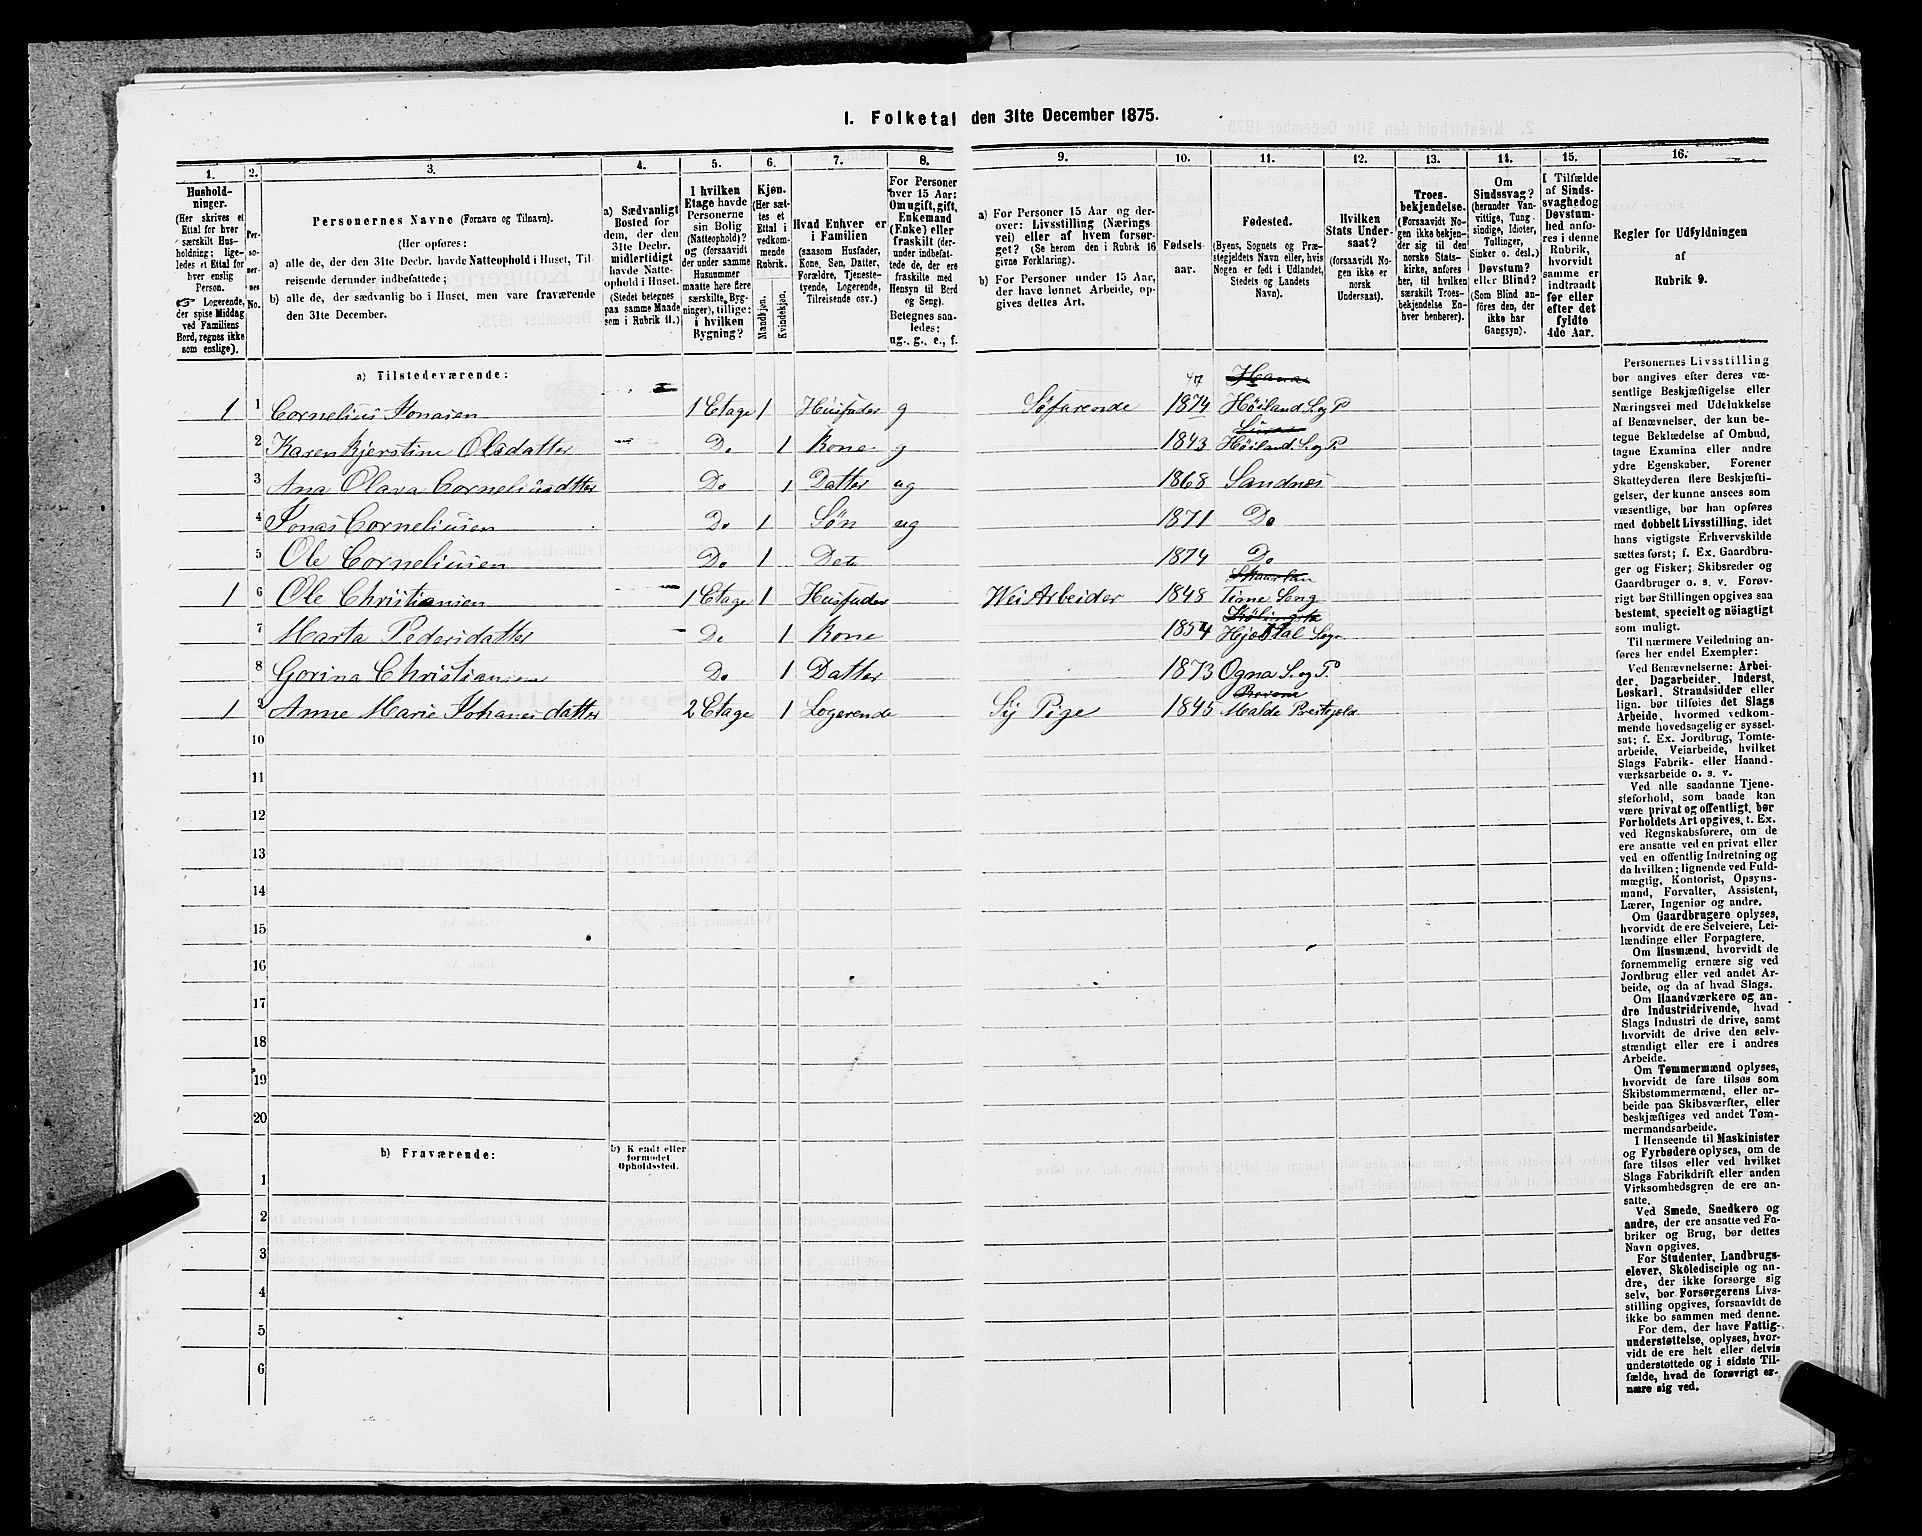 1. Folketal den 31te December 1875.
1. 2. 3. 4. 5. 6. 7. 8. 9. 10. 11. 12. 13. 14. 15. 16.
Hushold-
ninger.
(Her skrives et
Ettal for hver
særskilt Hus-
holdning; lige-
ledes et Ettal for
hver enslig
Person.
☞ Logerende,
der spise Middag
ved Familiens
Bord, regnes ikke
som enslige).
Per-
so-
ner-
nes
No.
Personernes Navne (Fornavn og Tilnavn).
(Her opføres:
a) alle de, der den 31te Decbr. havde Natteophold i Huset, Til-
reisende derunder indbefattede;
b) alle de, der sædvanlig bo i Huset, men vare fraværende
den 31te December.
a) Sædvanligt
Bosted for
dem, der den
31te Decbr.
midlertidigt
havde Natte-
ophold i Huset.
(Stedet betegnes
paa samme Maade
som i Rubrik 11.)
I hvilken
Etage havde
Personerne
sin Bolig
(Natteophold)?
og (forsaavidt
der under samme
Husnummer
maatte høre flere
særskilte Byg-
ninger), tillige:
i hvilken
Bygning?
Kjøn.
(Her sæt-
tes et
Ettal i
vedkom-
mende
Rubrik.
Mandkjøn.
Kvindekjøn.
Hvad Enhver er
i Familien
(saasom Husfader,
Kone, Søn, Datter,
Forældre, Tjeneste-
tyende, Logerende,
Tilreisende osv.)
For Personer
over 15 Aar:
Om ugift, gift,
Enkemand
(Enke) eller
fraskilt (der-
under indbefat-
tede de, der ere
fraskilte med
Hensyn til Bord
og Seng).
Betegnes saa-
ledes:
ug., g., e., f.
a) For Personer 15 Aar og der-
over: Livsstilling (Nærings
vei) eller af hvem forsør-
get? (Se herom den i Rubrik 16
givne Forklaring).
b) For Personer under 15 Aar,
der have lønnet Arbeide, op-
gives dettes Art.
Fødsels-
aar.
Fødested.
(Byens, Sognets og Præ-
stegjeldets Navn eller, hvis
Nogen er født i Udlandet,
Stedets og Landets
Navn).
Hvilken
Stats Under-
saat?
(forsaavidt No-
gen ikke er
norsk
Undersaat).
Troes-
bekjendelse.
(Forsaavidt No-
gen ikke bekjen-
der sig til den
norske Stats-
kirke, anføres
her, til hvilken
særskilt Troes-
bekjendelse En-
hver henhører).
Om
Sindssvag?
(herunder Van-
vittige, Tung-
sindige, Idioter,
Tullinger,
Sinker o. desl.)
Døvstum?
eller Blind?
(Som Blind an-
føres den, der
ikke har
Gangsyn).
I Tilfælde
af Sinds-
svaghed og
Døvstum-
hed anfø-
res i denne
Rubrik,
hvorvidt
samme er
indtraadt
før eller
efter det
fyldte
4de Aar.
Regler for Udfyldningen
af
Rubrik 9.
a) Tilstedeværende:
1 1 Cornelius Jonasen 1 Etage 1 Husfader g Søfarende 1874 47 Høiland S. og P
2 Karen Kjerstine Olsdatter Do 1 Kone g 1843 Høiland S. og P
3 Ana Olava Corneliusdtter Do 1 Datter ug 1868 Sandnes
4 Jonas Corneliusen Do 1 Søn ug 1871 Do
5 Ole Corneliusen Do 1 Dete 1874 Do
1 6 Ole Christiansen 1 Etage 1 Husfader Wei Arbeider 1848
7 Marta Pedersdatter Do 1 Kone 1854
8 Gorina Christiansen Do 1 Datter 1873 Ogna S. og P.
1 9 Anne Marie Johanesdatter 2 Etage 1 Logerende Sy Pige 1845 Malde Prestejeld
10
11
12
13
14
15
16
17
18
19
20
b) Fraværende:
b) Kjendt eller
formodet
Opholdssted.
1
2
3
4
5
6
Personernes Livsstilling
bør angives efter deres væ-
sentlige Beskjæftigelse eller
Næringsvei med Udelukkelse
af Benævnelser, der kun be-
tegne Beklædelse af Ombud,
tagne Examina eller andre
ydre Egenskaber. Forener
Skatteyderen flere Beskjæfti-
gelser, der kunne ansees som
væsentlige, bør han opføres
med dobbelt Livsstilling, idet
hans vigtigste Erhvervskilde
sættes først; f. Ex. Gaardbru-
ger og Fisker; Skibsreder og
Gaardbruger o. s. v. Forøv-
rigt bør Stillingen opgives saa
bestemt, specielt og nøiagtigt
som muligt.
Til nærmere Veiledning an-
føres her endel Exempler:
Ved Benævnelserne: Arbei-
der, Dagarbeider, Inderst,
Løskarl, Strandsidder eller
lign. bør tilføies det Slags
Arbeide, hvormed vedkom-
mende hovedsagelig er syssel-
sat; f. Ex. Jordbrug, Tomte-
arbeide, Veiarbeide, hvilket
Slags Fabrik- eller Haand-
værksarbeide o. s. v.
Ved alle saadanne Tjene-
steforhold, som baade kan
være privat og offentligt, bør
Forholdets Art opgives, t. Ex.
ved Regnskabsførere, om de
ere ansatte ved en privat eller
ved en offentlig Indretning og
da hvilken; lignende ved Fuld-
mægtig, Kontorist, Opsyns-
mand, Forvalter, Assistent,
Lærer, Ingeniør og andre.
Om Gaardbrugere oplyses,
hvorvidt de ere Selveiere, Lei-
lændinge eller Forpagtere.
Om Husmænd, hvorvidt de
fornemmelig ernære sig ved
Jordbrug eller ved andet Ar-
beide, og da af hvad Slags.
Om Haandværkere og an-
dre Industridrivende, hvad
Slags Industri de drive, samt
hvorvidt de drive den selv-
stændigt eller ere i andres
Arbeide.
Om Tømmermænd oplyses,
hvorvidt de fare tilsøs som
Skibstømmermænd, eller ar-
beide paa Skibsværfter, eller
beskjæftiges ved andet Tøm-
mermandsarbeide.
I Henseende til Maskinister
og Fyrbødere oplyses, om de
fare tilsøs eller ved hvilket
Slags Fabrikdrift eller anden
Virksomhedsgren de ere an-
satte.
Ved Smede, Snedkere og
andre, der ere ansatte ved Fa-
briker og Brug, bør dettes
Navn opgives.
For Studenter, Landbrugs-
elever, Skoledisciple og an-
dre, der ikke forsørge sig
selv, bør Forsørgerens Livs-
stilling opgives, forsaavidt de
ikke bo sammen med denne.
For dem, der have Fattig-
understøttelse, oplyses, hvor-
vidt de ere helt eller delvis
understøttede og i sidste Til-
fælde, hvad de forøvrigt er-
nære sig ved.